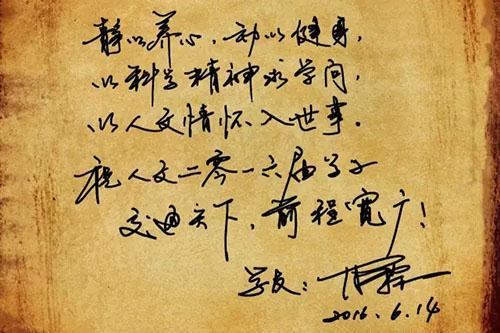 静以养心，动以健身，
以科学精神求学问，
以人文情怀入世事．
祝人文二零一六届学子
交通天下，前程宽广！
学友：
2016.6.14